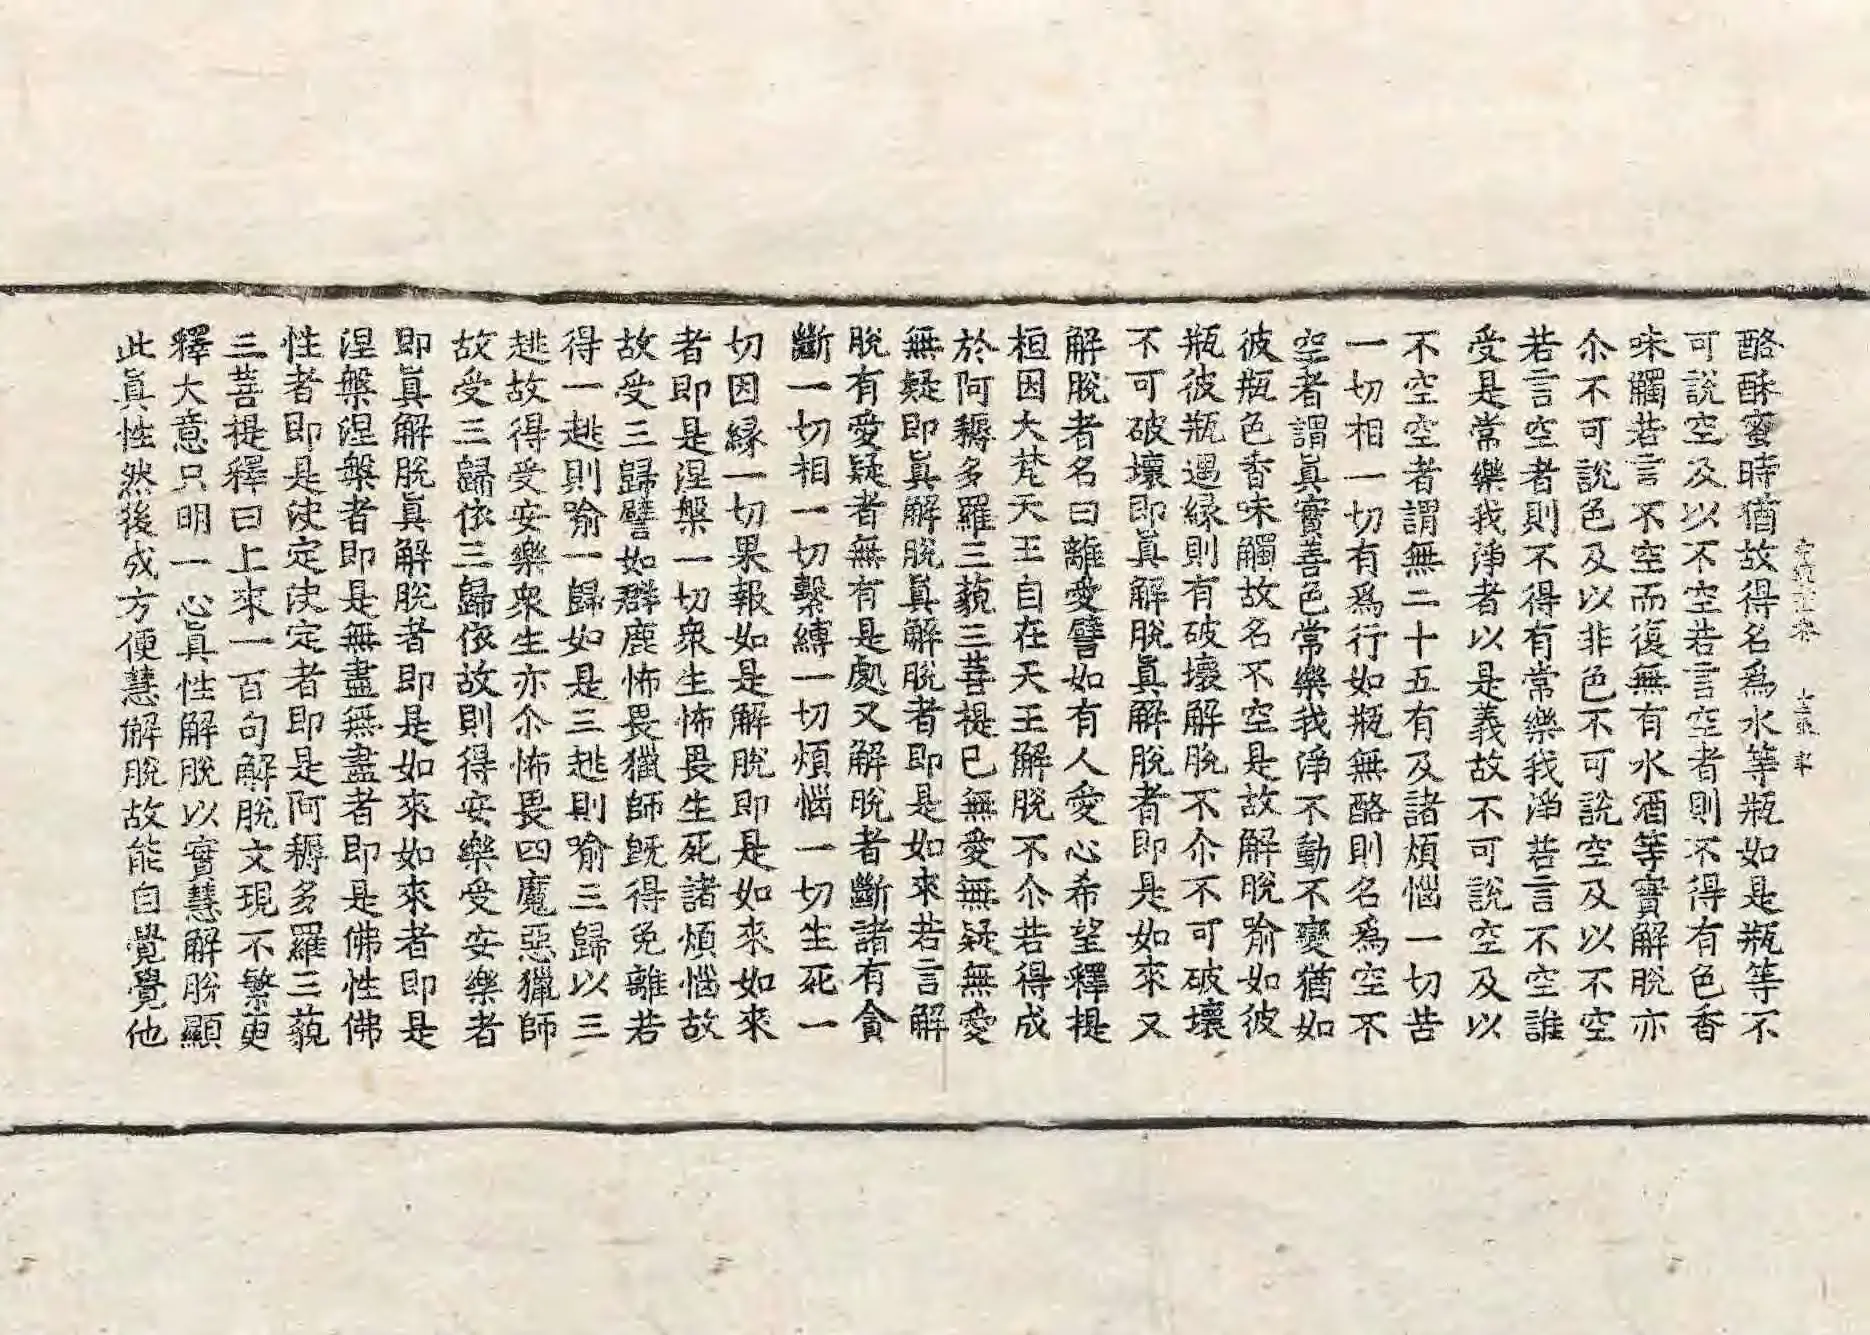 酪酥蜜時猶故得名爲水等瓶如是瓶等不
可說空及以不空若言空者則不得有色香
味觸若言不空而復無有水酒等實解脫亦
尒不可說色及以非色不可說空及以不空
若言空者則不得有常樂我淨若言不空誰
受是常樂我淨者以是義故不可說空及以
不空空者謂無二十五有及諸煩惱一切苦
一切相一切有爲行如瓶無酪則名爲空不
空者謂眞實善色常樂我淨不動不變猶如
彼瓶色香味觸故名不空是故解脫喻如彼
瓶彼瓶遇緣則有破壞解脫不尒不可破壞
不可破壞即眞解脫眞解脫者即是如來又
解脫者名曰離愛譬如有人愛心希望釋提
桓因大梵天王自在天王解脫不尒若得成
於阿耨多羅三藐三菩提已無愛無疑無愛
無疑即眞解脫眞解脫者即是如來若言解
脫有愛疑者無有是處又解脫者斷諸有貪
斷一切相一切繫縛一切煩惱一切生死一
切因緣一切果報如是解脫即是如來如來
者即是涅槃一切衆生怖畏生死諸煩惱故
故受三歸譬如群鹿怖畏獵師旣得免離若
得一趒則喻一歸如是三趒則喻三歸以三
趒故得受安樂衆生亦尒怖畏四魔惡獵師
故受三歸依三歸依故則得安樂受安樂者
即眞解脫眞解脫者即是如來如來者即是
涅槃涅槃者即是無盡無盡者即是佛性佛
性者即是決定決定者即是阿耨多羅三藐
三菩提釋曰上來一百句解脫文現不繁更
釋大意只明一心眞性解脫以實慧解脫顯
此眞性然後成方便慧解脫故能自覺覺他